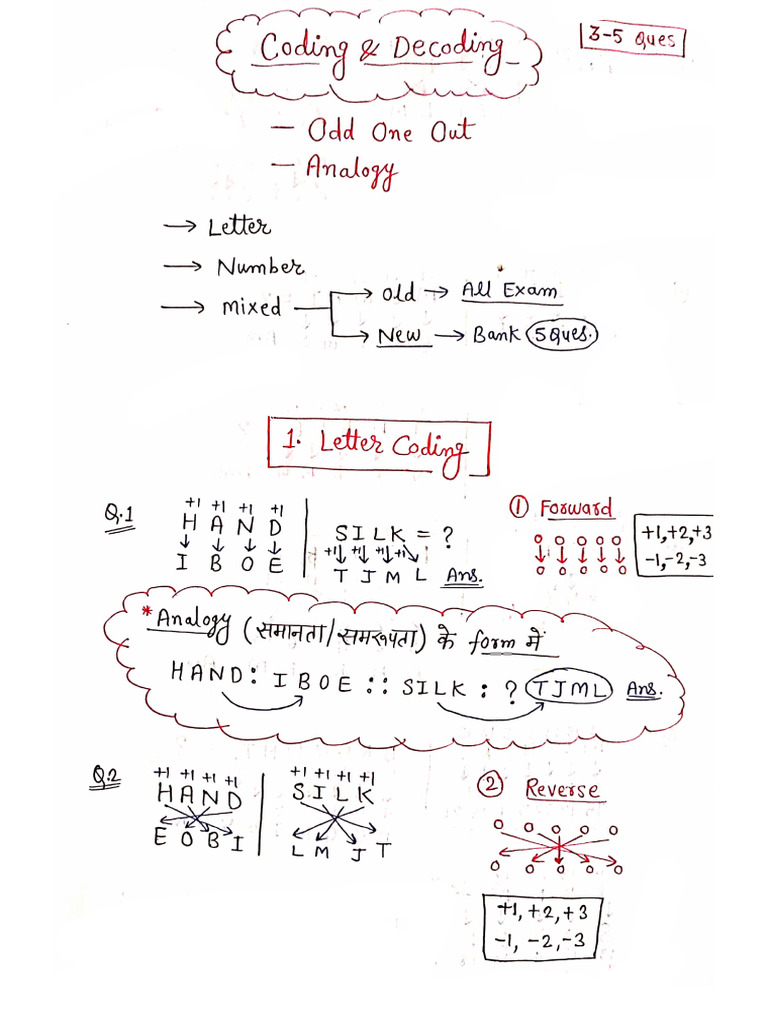 Coding & Decoding
3-5 Ques
— Odd One Out
— Analogy
→ Letter
→ Number
→ mixed → old → All Exam
→ New → Bank 5 Ques.
1. Letter Coding
Q.1
+1 +1 +1 +1
H A N D
↓ ↓ ↓ ↓
I B O E
SILK = ?
+1↓ +1↓ +1↓ +1↘
T J M L Ans.
① Forward
o o o o o
↓ ↓ ↓ ↓ ↓
o o o o o
+1, +2, +3
-1, -2, -3
* Analogy (समानता/समरूपता) के form में
HAND : IBOE :: SILK : ? TJML Ans.
Q.2
+1 +1 +1 +1
H A N D
E O B I
+1 +1 +1 +1
S I L K
L M J T
② Reverse
o o o o o
o o o o o
+1, +2, +3
-1, -2, -3